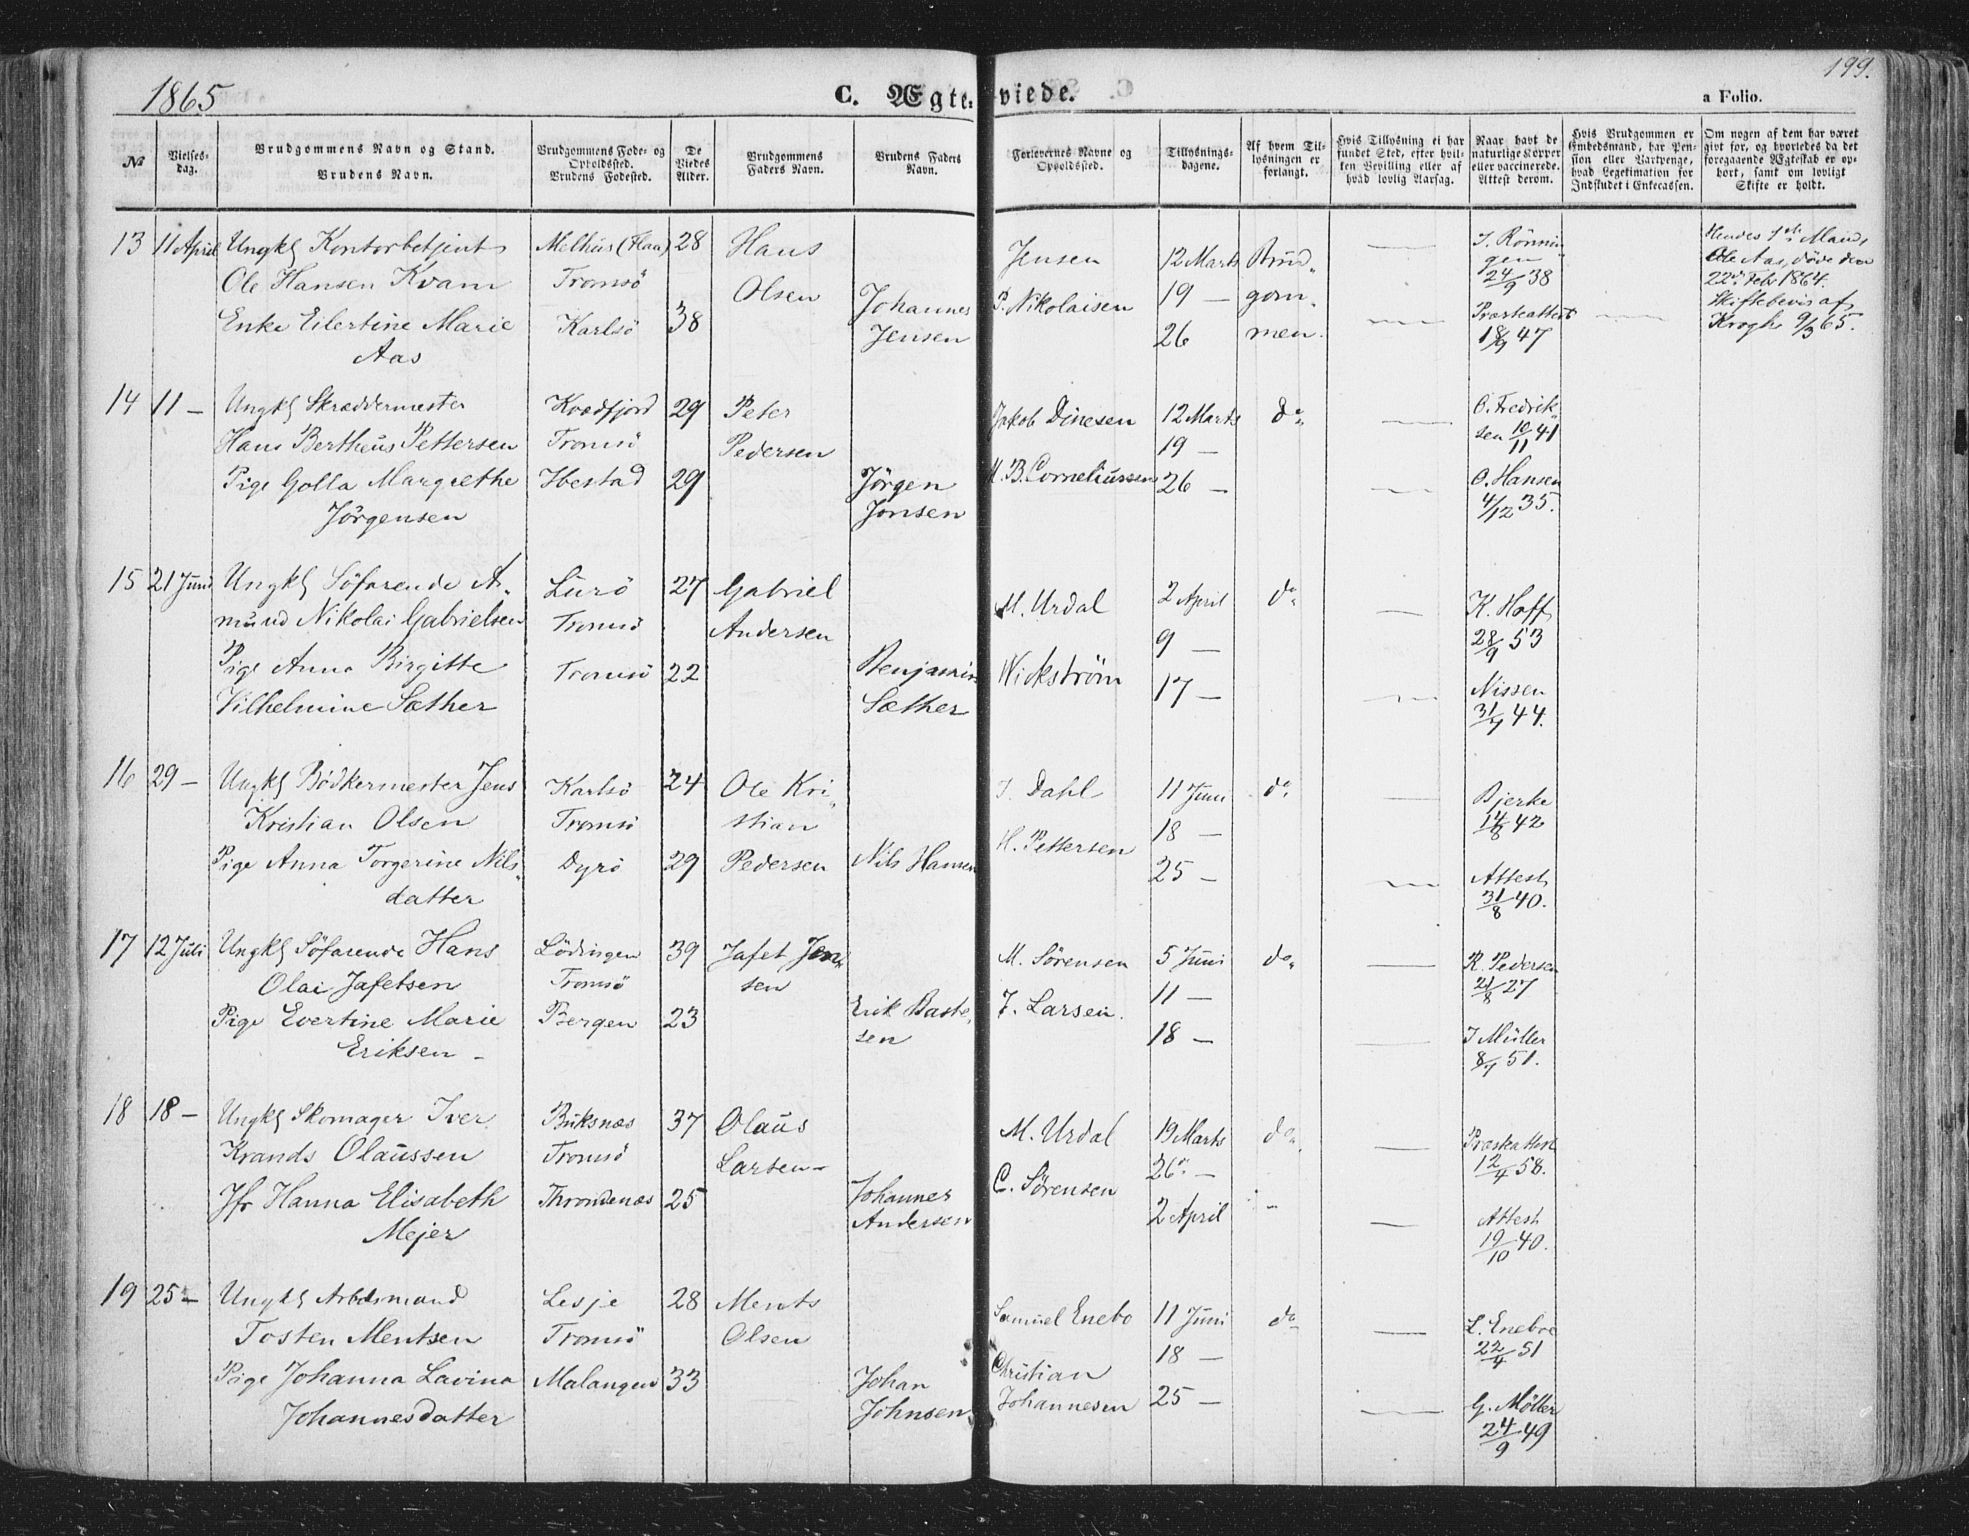 1865
C. Ægteviede.
199.
a Folio.
№
Vielsesdag.
Brudgommens Navn og Stand.
Brudens Navn.
Brudgommens Føde- og Opholdssted.
Brudens Fødested.
De Viedes Alder.
Brudgommens Faders Navn.
Brudens Faders Navn.
Forlovernes Navne og Opholdssted.
Tillysningsdagene.
Af hvem Tillysningen er forlangt.
Hvis Tillysning ei har fundet Sted, efter hvilken Bevilling eller af hvad lovlig Aarsag.
Naar havt de naturlige Kopper eller vaccinerede. Attest derom.
Hvis Brudgommen er Embedsmand, har Pension eller Vartpenge, hvad Legitimation for Indskudet i Enkecassen.
Om nogen af dem har været givt før, og hvorledes da det foregaaende Ægteskab er ophørt, samt om lovligt Skifte er holdt.
13 11 April Ungkl Kontorbetjent Melhus (Flaa) 28 Hans Jensen 12 Marts Brud- — J. Rönnin- Hendes 1ste Mand,
Ole Hansen Kvam Tromsö Olsen gen 24/9 38 Ole Aas, döde den 22d Feb 1864.
Enke Eilertine Marie Karlsö 38 Johannes P. Nikolaisen 19 — gom- — Præsteattest — Skiftebevis af
Aas Jensen 26 men. 18/9 47 Krogh 9/3 65.
14 11 — Ungkl Skræddermester Kvædfjord 29 Peter Jakob Dinesen 12 Marts do — O. Fredrik-
Hans Bertheus Pettersen Tromsö Pedersen 19 — sen 10/11 41
Pige Golla Margrethe Ibestad 29 Jörgen M. B. Corneliussen 26 — — O. Hansen
Jörgensen Jonsen 4/12 35.
15 21 Juni Ungkl Söfarende A- Lurö 27 Gabriel M. Urdal 2 April do — K. Hoff
mund Nikolai Gabrielsen Tromsö Andersen 9 — 28/9 53
Pige Anna Birgitte Tromsö 22 Benjamin Wickström 17 — — Nissen
Vilhelmine Sæther Sæther 31/7 44.
16 29 — Ungkl Bödkermester Jens Karlsö 24 Ole Kri- J. Dahl 11 Juni do — Bjerke
Kristian Olsen Tromsö stian 18 — 14/8 42
Pige Anna Torgerine Nils- Dyrö 29 Pedersen Nils Hansen H. Pettersen 25 — — Attest
datter 31/8 40.
17 12 Juli Ungkl Söfarende Hans Lödingen 39 Jafet Jen- M. Sörensen 5 Juni do — R. Pedersen
Olai Jafetsen Tromsö sen 11 — 21/8 27
Pige Evertine Marie Bergen 23 Erik Baste- F. Larsen. 18 — — J Müller
Eriksen — sen 8/7 51.
18 18 — Ungkl Skomager Iver Buksnæs 37 Olaus M. Urdal 19 Marts do — Præsteattest
Krands Olaussen Tromsö Larsen — 26 — 12/4 58.
Jfr Hanna Elisabeth Throndenæs 25 Johannes C. Sörensen 2 April — Attest
Mejer Andersen 19/10 40.
19 25 — Ungkl Arbdsmand Lesje 28 Ments Samuel Enebo 11 Juni do — L. Eneboe
Tosten Mentsen Tromsö Olsen 18 — 22/4 51
Pige Johanna Lavina Malangen 33 Johan Christian 25 — — G. Möller
Johannesdatter Johnsen Johannesen 24/9 49